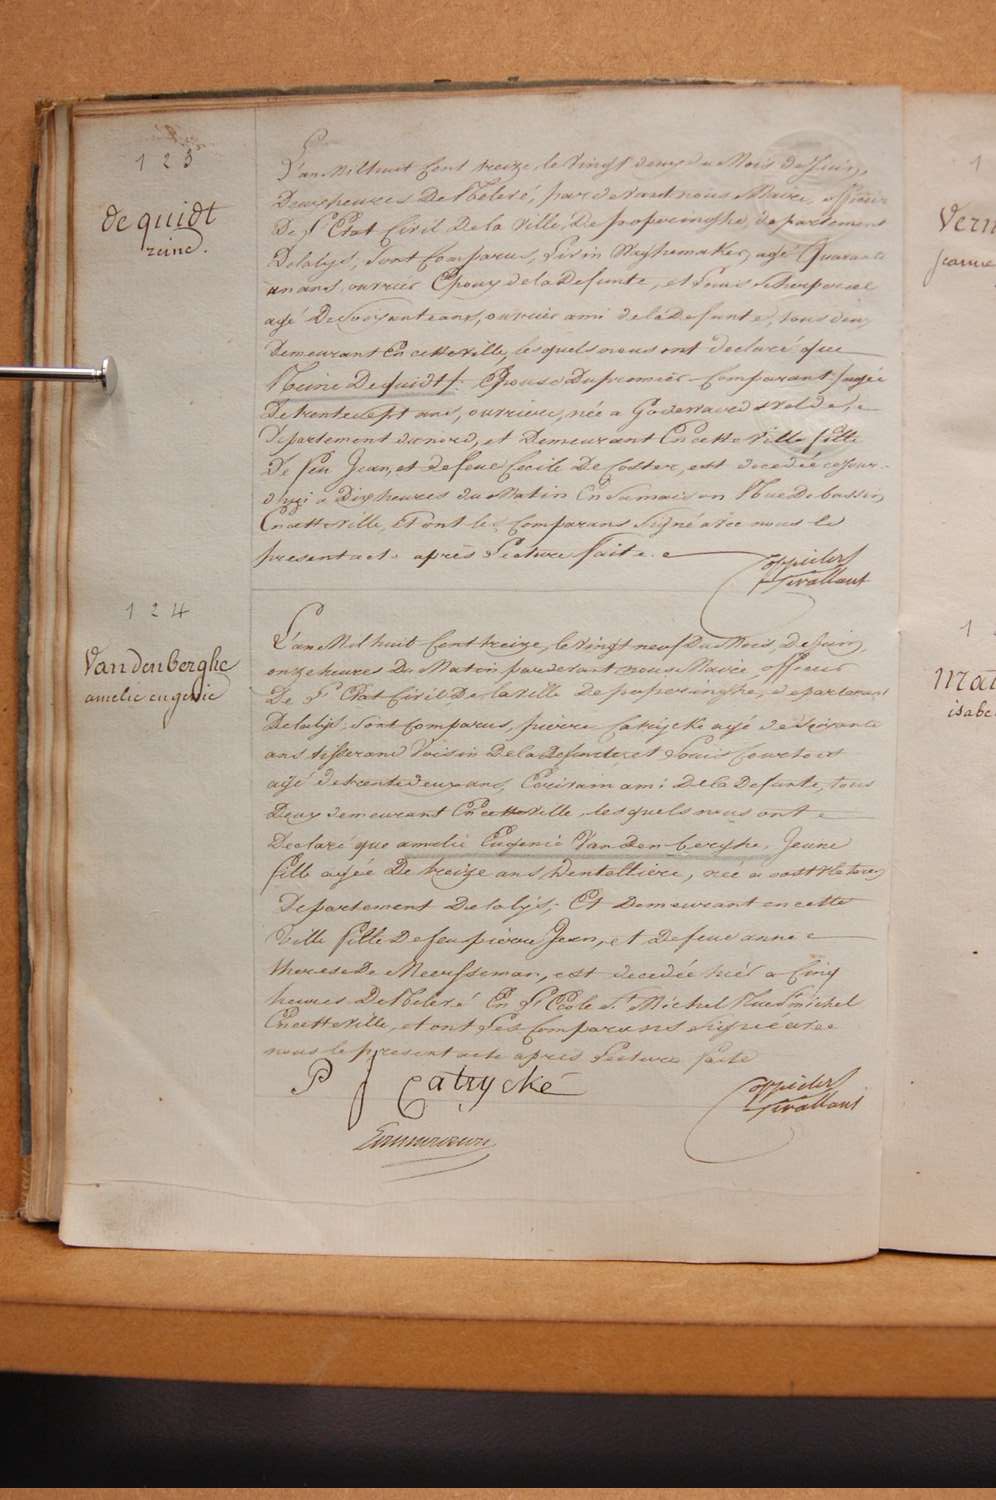 123
de quidt
reine.
L'an Mil huit Cent treize, le Vingt deux du Mois de Juin,
Deux heures De Relevé, par devant nous Maire, officier
De L'Etat Civil De la Ville, De poperinghe, departement
Delalys, Sont Comparus, Livin Ryckemaker, agé Quarante
un ans, ouvrier Epoux de la Defunte, et Louis
agé De Soixante ans, ouvrier ami de la Defunte, tous deux
Demeurant En cette ville, lesquels nous ont declaré que
Reine Dequidt, Epouse Du premier Comparant, agée
De trente sept ans, ouvriere, née a Godewaersvelde,
Departement du nord, et Demeurant En cette ville fille
De feu Jean, et defeue Cecile De Coster, est decedée cejour-
d'hui a Dix heures du Matin En Samaison Rue De bassin
En cette ville, Et ont les Comparans Signé avec nous le
present acte après Lecture faite.
124
Vandenberghe
amelie eugenie
L'an Mil huit Cent treize, le Vingt neuf Du Mois, De Juin
onze heures Du Matin par devant nous Maire officier
De L'Etat Civil, De la Ville De poperinghe, departement
Delalys, Sont Comparus, pierre Catrycke agé de Soixante
ans tisserand Voisin De la Defunte, et Louis Courtois
agé de trente deux ans, Ecrivain ami De la Defunte, tous
Deux demeurant En cette Ville, lesquels nous ont
Declaré que amelie Eugenie Van Den berghe, Jeune
fille agée De treize ans, Dentelliere, née a oostvleteren
Departement De la lys, Et Demeurant en cette
Ville fille De feu pierre Jean, et defeue anne
therese De Meersseman, est decedée hier a Cinq
heures De Relevé En L'Ecole St Michel Rue St michel
En cette ville, et ont Les Comparans Signé avec
nous le present acte après Lecture faite
P J Catrycké
1
Vern
jeanne
1
Mat
isabe